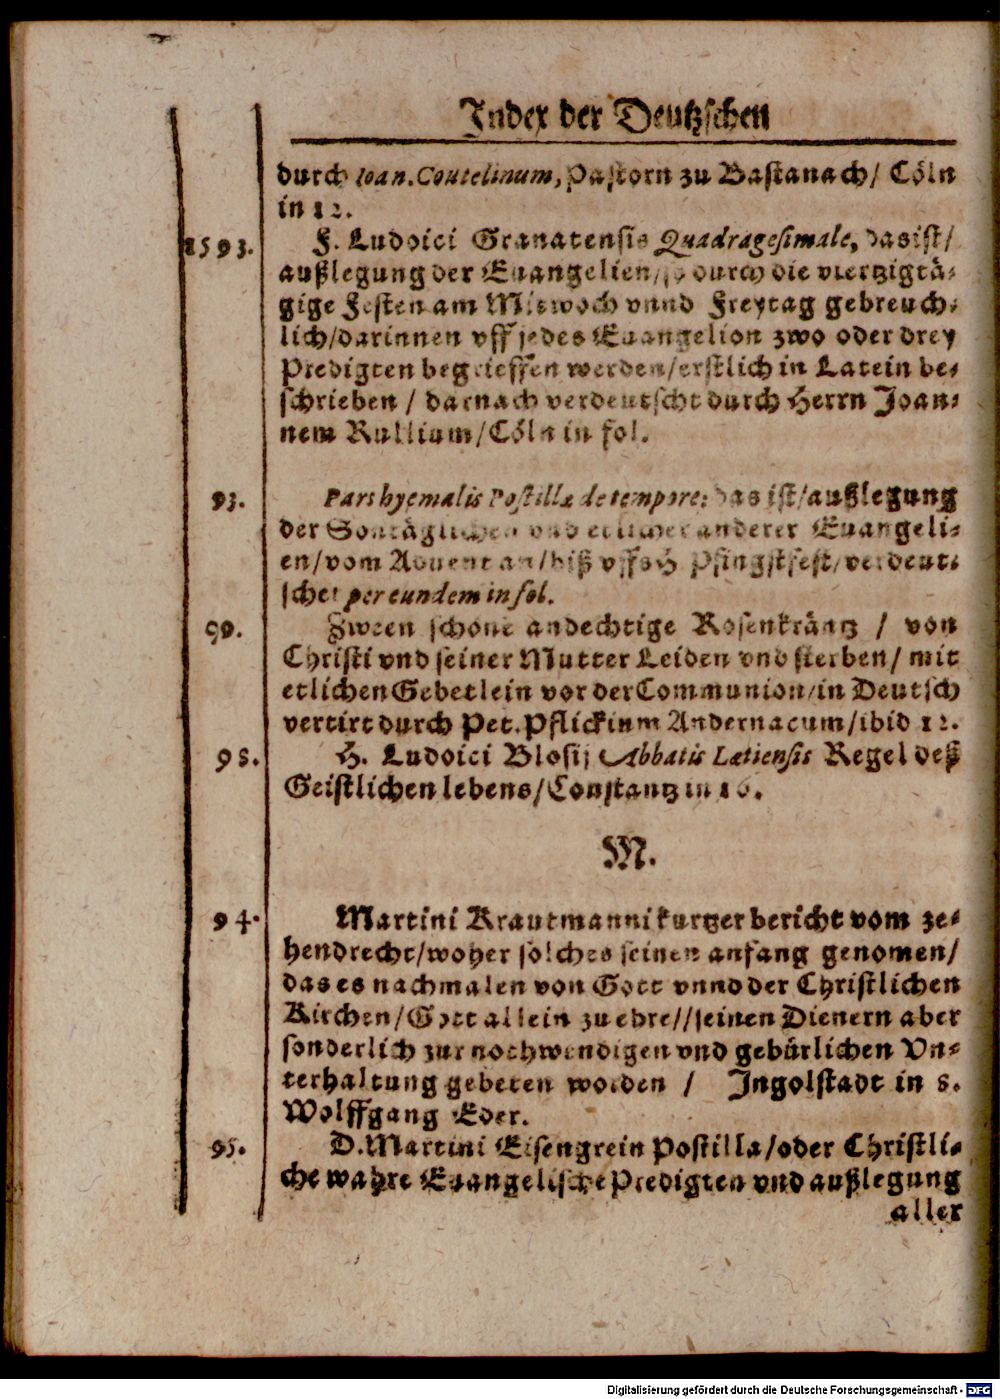 Index der Deutzschen
durch Ioan. Coutelinum, Pastorn zu Bastanach/ Cöln
in 12.
1593. F. Ludoici Granatensis Quadragesimale, das ist/
außlegung der Euangelien/so durch die viertzigtä-
gige Festen am Mitwoch vnnd Freytag gebreuch-
lich/darinnen vff jedes Euangelion zwo oder drey
Predigten begrieffen werden/erstlich in Latein be-
schrieben / darnach verdeutscht durch Herrn Joan-
nem Rullium/Cöln in fol.
93. Pars hyemalis Postillæ de tempore: das ist/außlegung
der Sontäglichen vnd etlicher anderer Euangeli-
en/vom Aduent an/biß vffs H. Pfingstfest/verdeut-
schet per eundem in fol.
90. Zween schöne andechtige Rosenkräntz / von
Christi vnd seiner Mutter Leiden vnd sterben/ mit
etlichen Gebetlein vor der Communion/in Deutsch
vertirt durch Pet. Pflickium Andernacum/ibid 12.
98. H. Ludoici Blosij Abbatis Lætiensis Regel deß
Geistlichen lebens/Constantz in 16.
M.
94. Martini Krautmanni kurtzer bericht vom ze-
hendrecht/woher solches seinen anfang genomen/
das es nachmalen von Gott vnnd der Christlichen
Kirchen/Gott allein zu ehre//seinen Dienern aber
sonderlich zur nothwendigen vnd gebürlichen Vn-
terhaltung gebeten worden / Ingolstadt in 8.
Wolffgang Eder.
95. D. Martini Eisengrein Postilla/oder Christli-
che wahre Euangelische Predigten vnd außlegung
aller
Digitalisierung gefördert durch die Deutsche Forschungsgemeinschaft - DFG